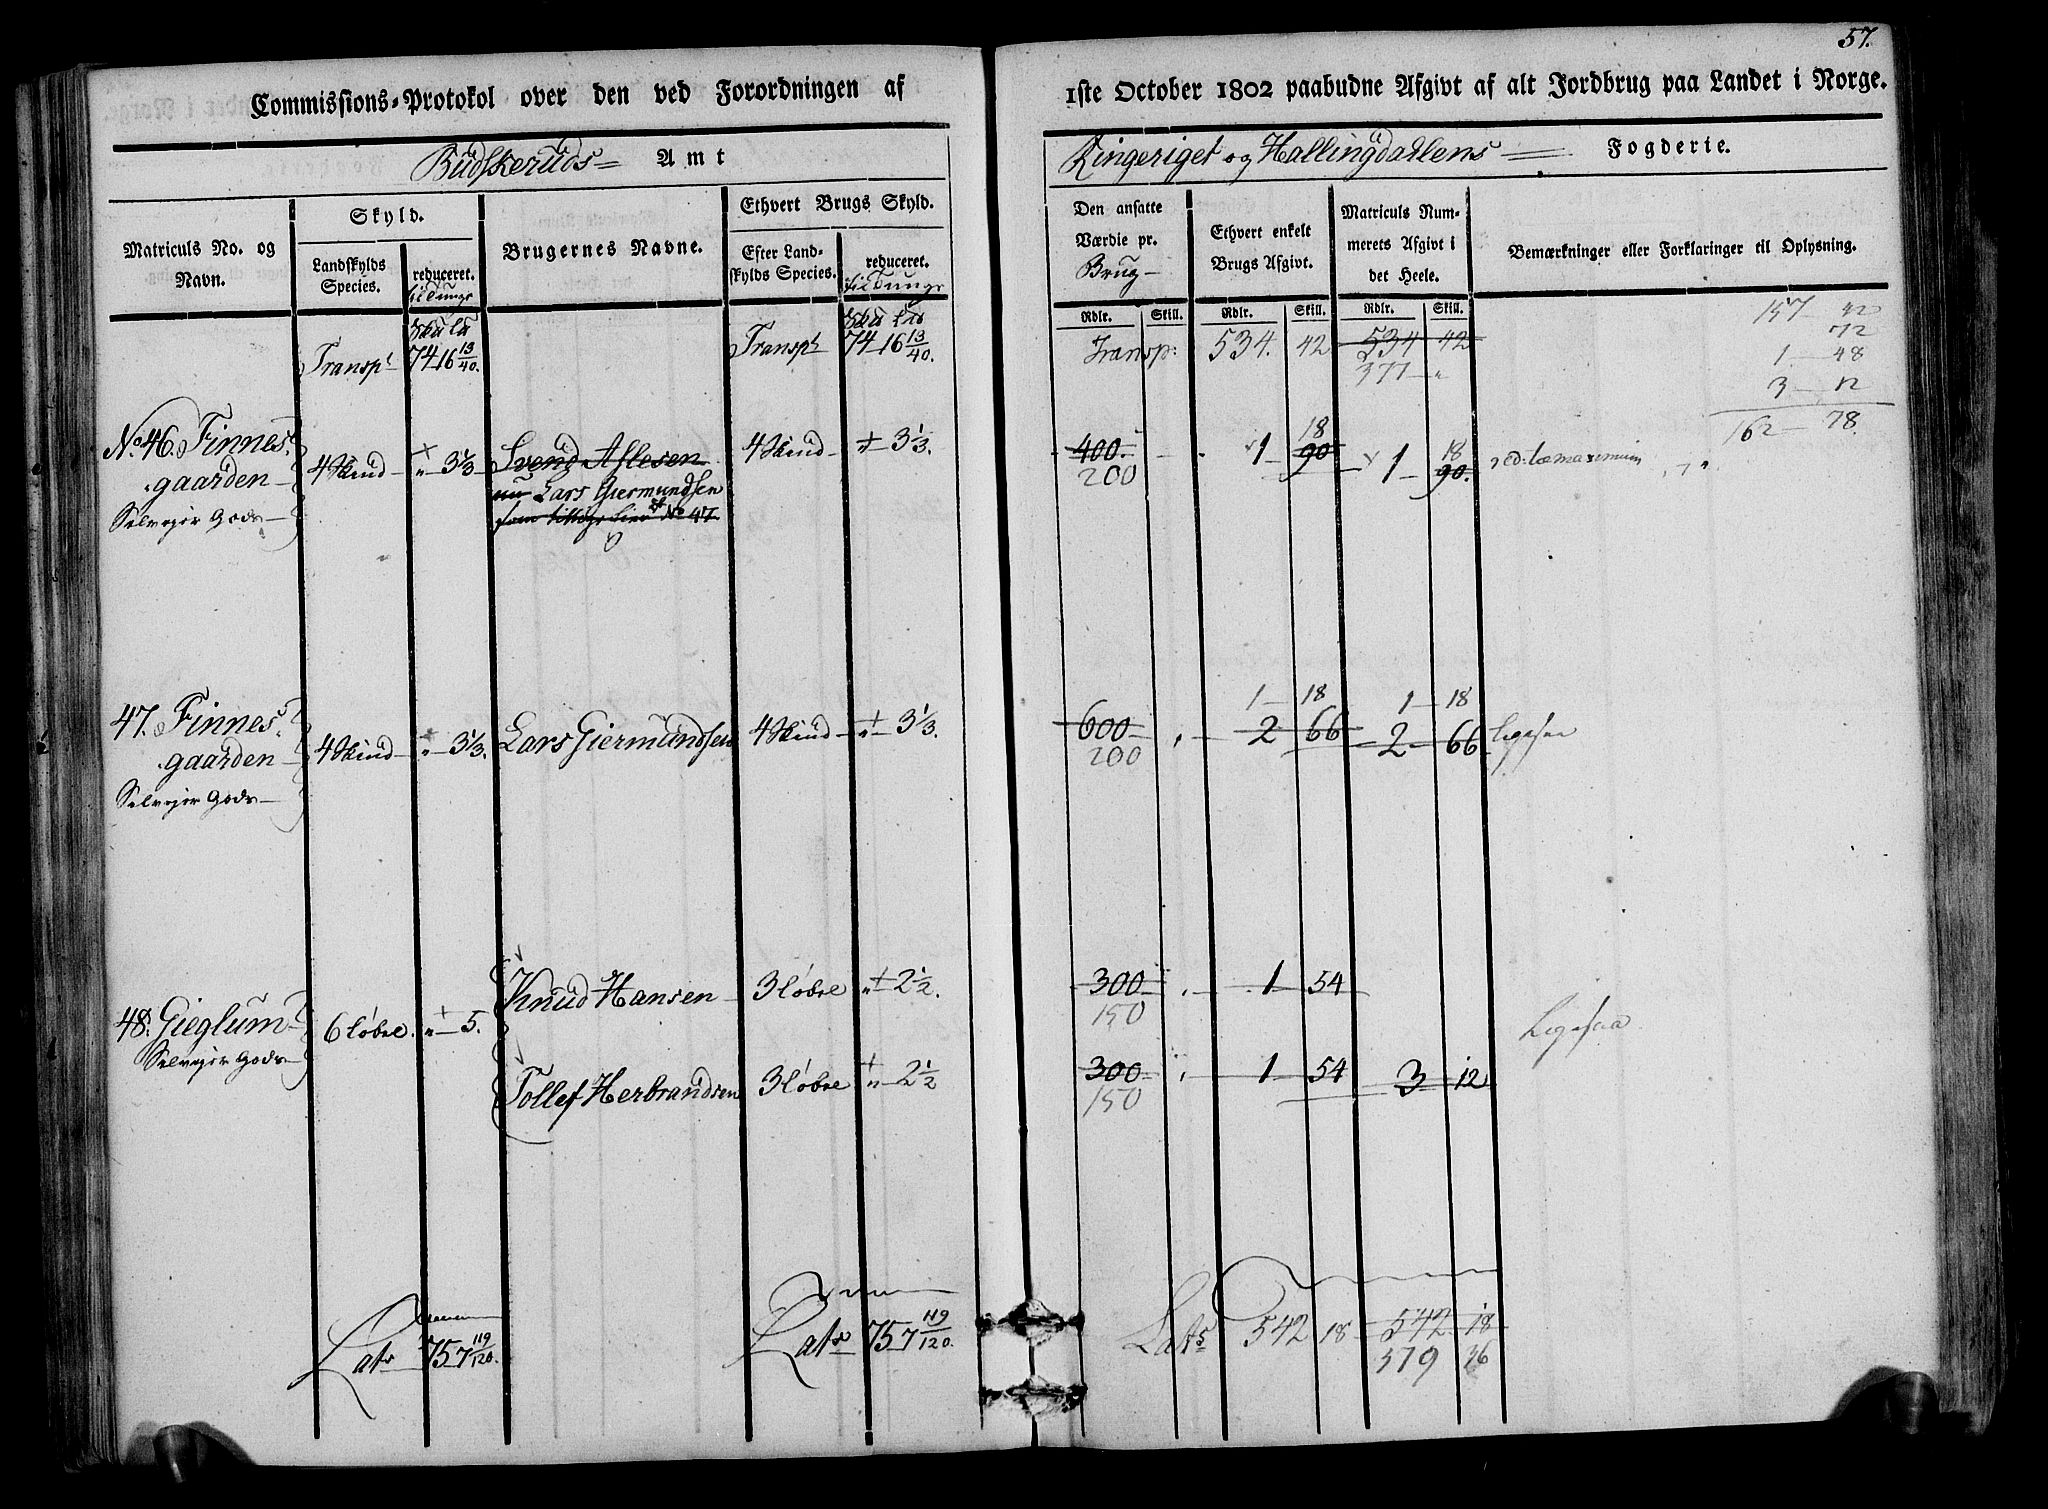 57.
Commissions-Protokol over den ved Forordningen af 1ste October 1802 paabudne Afgivt af alt Jordbrug paa Landet i Norge.
Büdskerüds Amt
Ringeriget og Hallingdahlens Fogderie.
Matriculs No. og Navn.
Skyld.
Landskylds Species.
reduceret. til Tunge
Brugernes Navne.
Ethvert Brugs Skyld.
Efter Landskylds Species.
reduceret. til Tunge
Den ansatte Værdie pr. Brug
Ethvert enkelt Brugs Afgivt.
Matriculs Nummerets Afgivt i det Heele.
Bemærkninger eller Forklaringer til Oplysning.
Rdlr. Skill. Rdlr. Skill. Rdlr. Skill.
Transpt 74 16 13/40. Transpt 74 16 13/40.
Transp: 534. 42 534 42
377 〃
157 42
72
1 48
3 12
162 78.
No. 46. Finnes
gaarden
Selvejer Gods
4 Skind 〃 3 1/3 Svend Aslesen 4 Skind 〃 3 1/3.
nu Lars Giermundsen
No 47
400. 1 90 1 90.
200 18 18
47. Finnes
gaarden
Selvejer Gods
4 Skind 〃 3 1/3. Lars Giermundsen 4 Skind 〃 3 1/3.
1 18 1 18
600 2 66 2 66 Ligesaa
200
Knüd Hansen 3 Løbe 〃 2 1/2.
300 1 54
150
48. Gieglum
Selvejer Gods
6 Løbe. 〃 5.
Ligesaa
Tollef Herbrandsen 3 Løbe 〃 2 1/2
300 1 54 3 12
150
Lats 75 7 119/120. Lats 75 7 119/120.
Lats 542 18 542 18
379 36